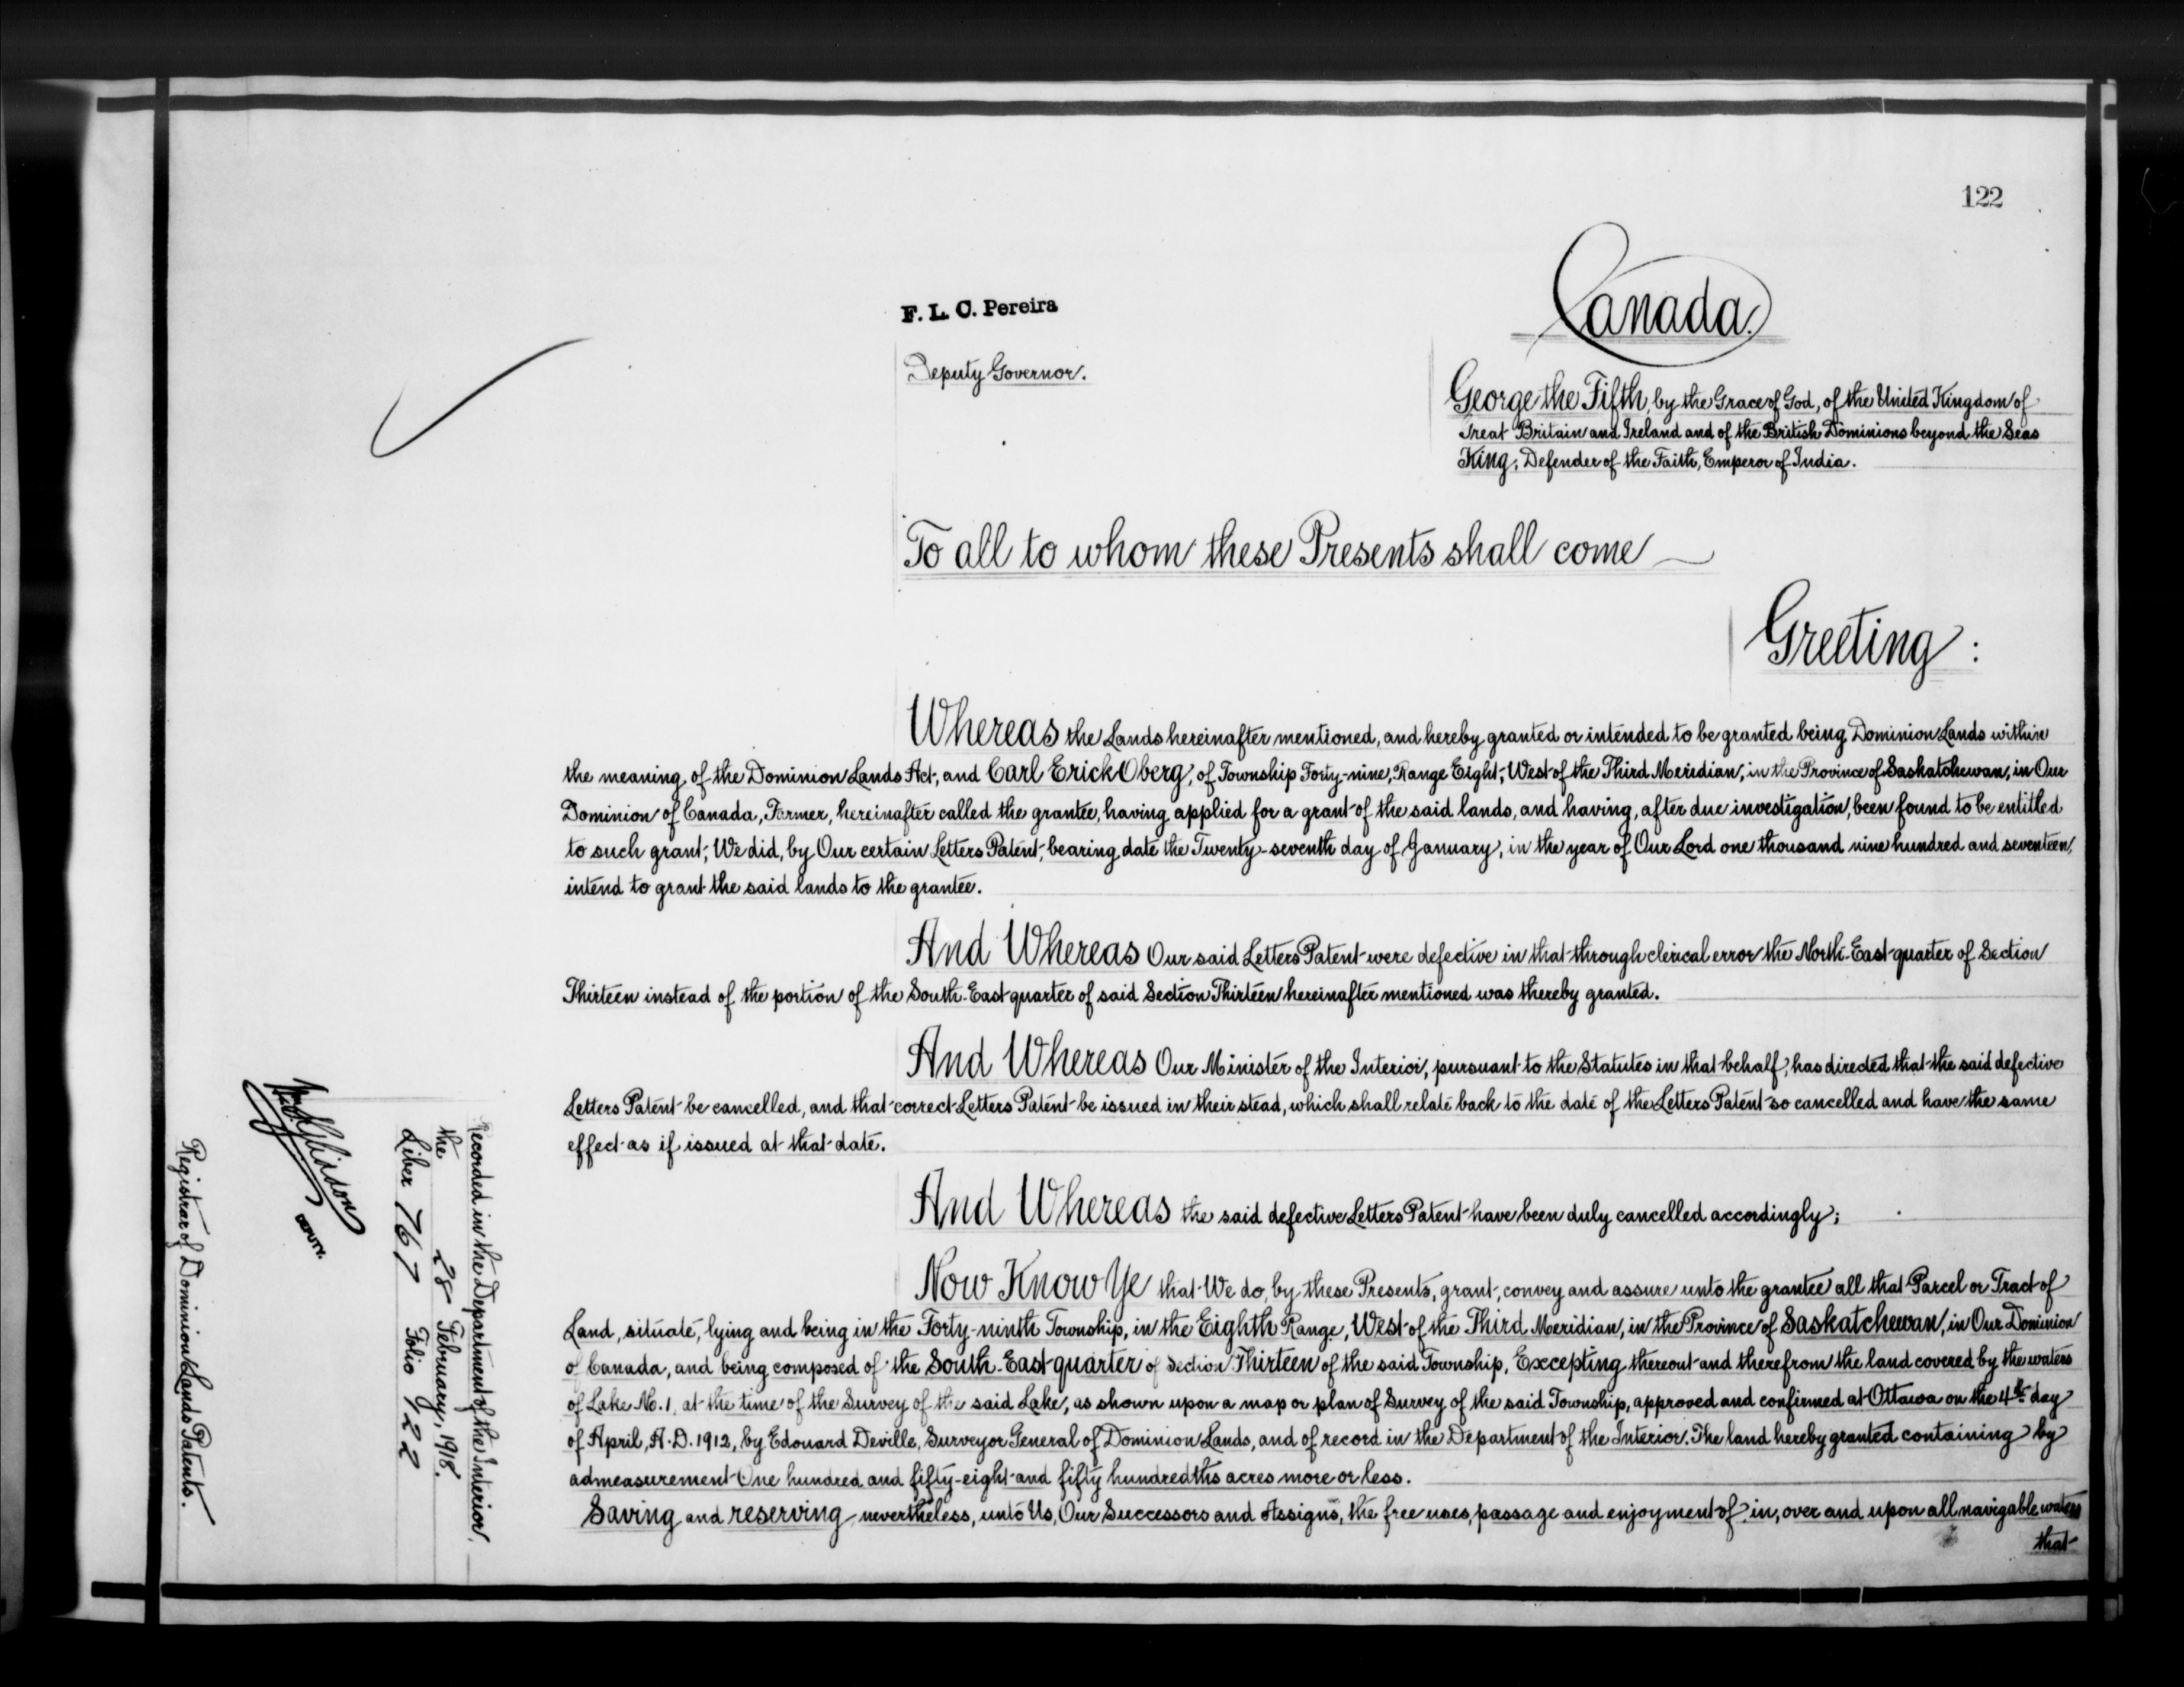 122
Canada.
F. L. C. Pereira
Deputy Governor.
George the Fifth, by the Grace of God, of the United Kingdom of
Great Britain and Ireland and of the British Dominions beyond the Seas
King, Defender of the Faith, Emperor of India.
To all to whom these Presents shall come
Greeting:
Whereas the Lands hereinafter mentioned, and hereby granted or intended to be granted being Dominion Lands within
the meaning of the Dominion Lands Act, and Carl Erick Oberg, of Township Forty-nine, Range Eight, West of the Third Meridian, in the Province of Saskatchewan, in Our
Dominion of Canada, Farmer, hereinafter called the grantee, having applied for a grant of the said lands, and having, after due investigation, been found to be entitled
to such grant, We did, by Our certain Letters Patent, bearing date the Twenty-seventh day of January, in the year of Our Lord one thousand nine hundred and seventeen,
intend to grant the said lands to the grantee.
And Whereas Our said Letters Patent were defective in that through clerical error the North-East quarter of Section
Thirteen instead of the portion of the South-East quarter of said Section Thirteen hereinafter mentioned was thereby granted.
And Whereas Our Minister of the Interior, pursuant to the Statutes in that behalf, has directed that the said defective
Letters Patent be cancelled, and that correct Letters Patent be issued in their stead, which shall relate back to the date of the Letters Patent so cancelled and have the same
effect as if issued at that date.
And Whereas the said defective Letters Patent have been duly cancelled accordingly;
Now Know Ye that We do, by these Presents, grant, convey and assure unto the grantee all that Parcel or Tract of
Land, situate, lying and being in the Forty-ninth Township, in the Eighth Range, West of the Third Meridian, in the Province of Saskatchewan, in Our Dominion
of Canada, and being composed of the South-East quarter of Section Thirteen of the said Township, Excepting thereout and therefrom the land covered by the waters
of Lake No. 1, at the time of the Survey of the said Lake, as shown upon a map or plan of Survey of the said Township, approved and confirmed at Ottawa on the 4th day
of April, A.D. 1912, by Edouard Deville, Surveyor General of Dominion Lands, and of record in the Department of the Interior. The land hereby granted containing by
admeasurement One hundred and fifty-eight and fifty hundredths acres more or less.
Saving and reserving nevertheless, unto Us, Our Successors and Assigns, the free uses, passage and enjoyment of, in, over and upon all navigable waters
that
Recorded in the Department of the Interior,
the 28 February, 1918.
Liber 767 Folio 422
DEPUTY.
Registrar of Dominion Lands Patents.